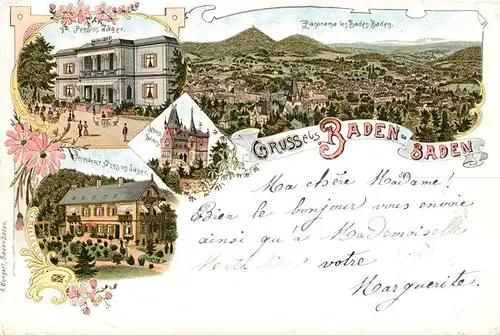 Pension Jäger.
Panorama von Baden-Baden.
Schloss
GRUSS aus BADEN-
BADEN
Dependence Pension Jäger.
Ma chère Madame!
Bien le bonjour vous envoie
ainsi qu'à Mademoiselle
votre
Marguerite.
A. Bongert, Baden-Baden.